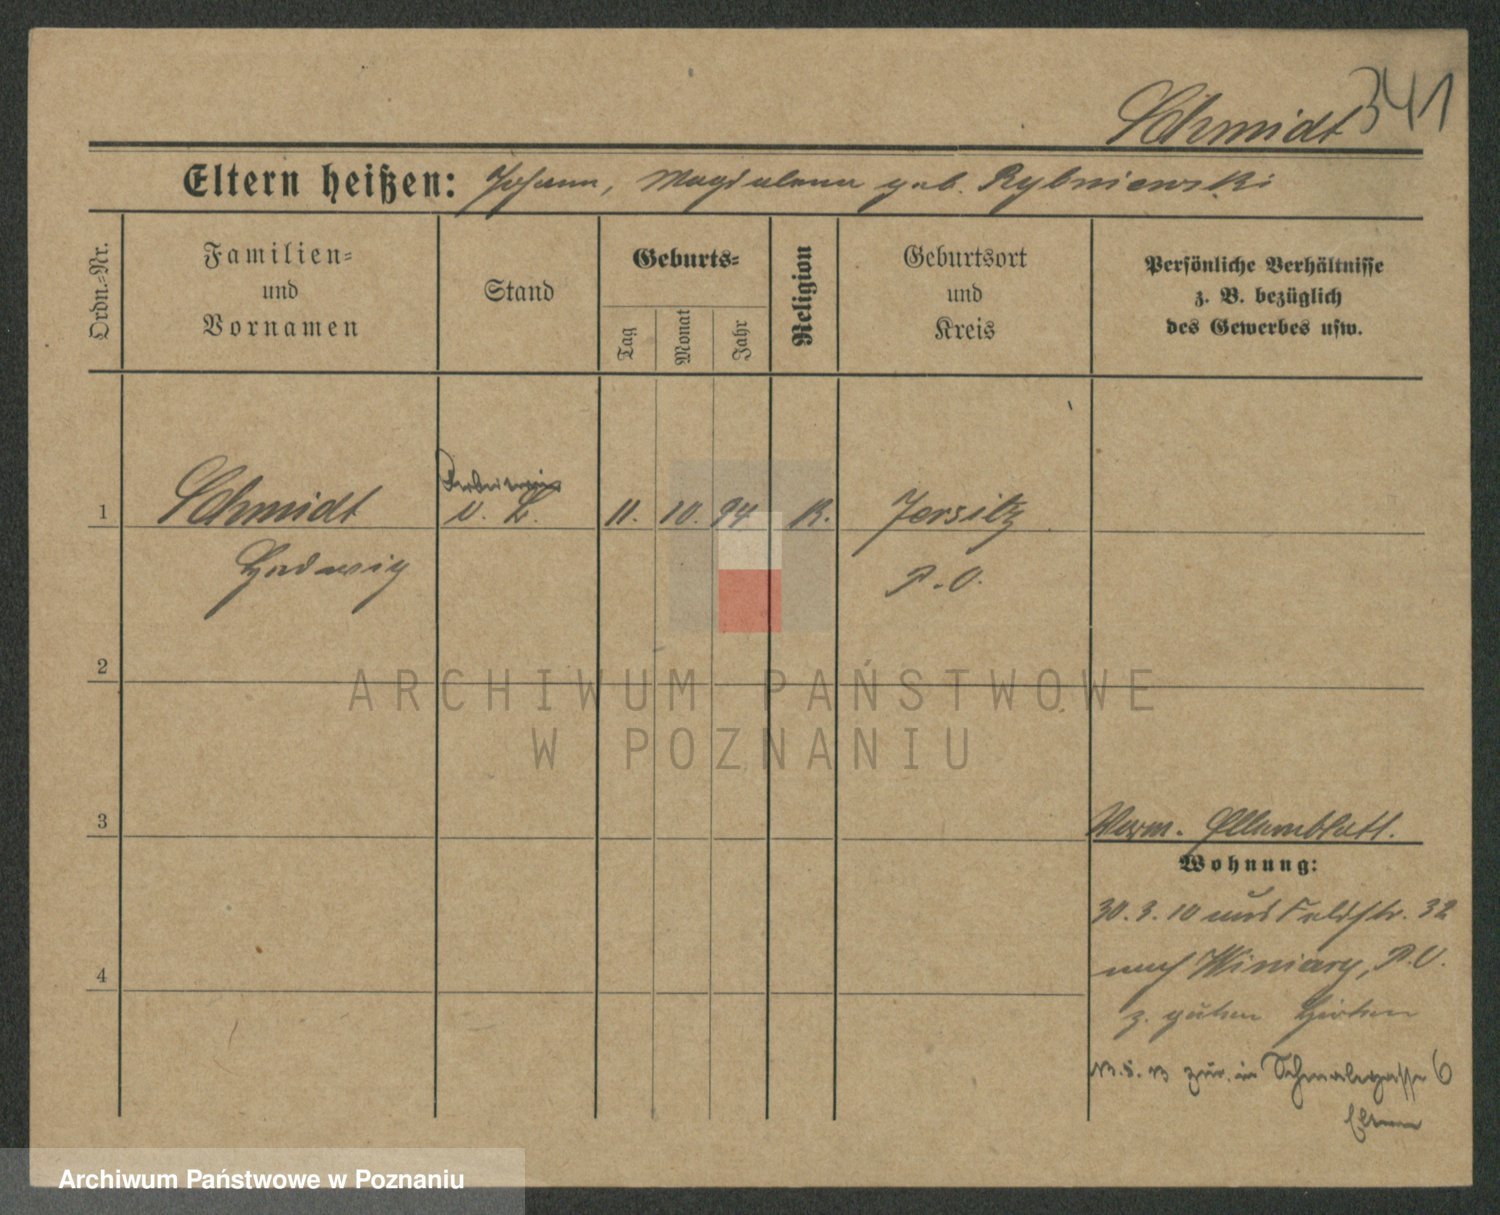 341
Schmidt
Eltern heißen: Johann, Magdalena geb. Rybniewski
Ordn.-Nr.
Familien-
und
Vornamen
Stand
Geburts-
Tag
Monat
Jahr
Religion
Geburtsort
und
Kreis
Persönliche Verhältnisse
z. B. bezüglich
des Gewerbes usw.
1 Schmidt 11. 10. 94 K. Jersitz
Hedwig P.O.
2
3
Verm. Elternblatt.
Wohnung:
30.3.10 aus Feldstr. 32
4
nach Winiary, P.O.
z. guten Hirten
zur. in Schmalegasse 6
Eltern
ARCHIWUM PAŃSTWOWE
W POZNANIU
Archiwum Państwowe w Poznaniu